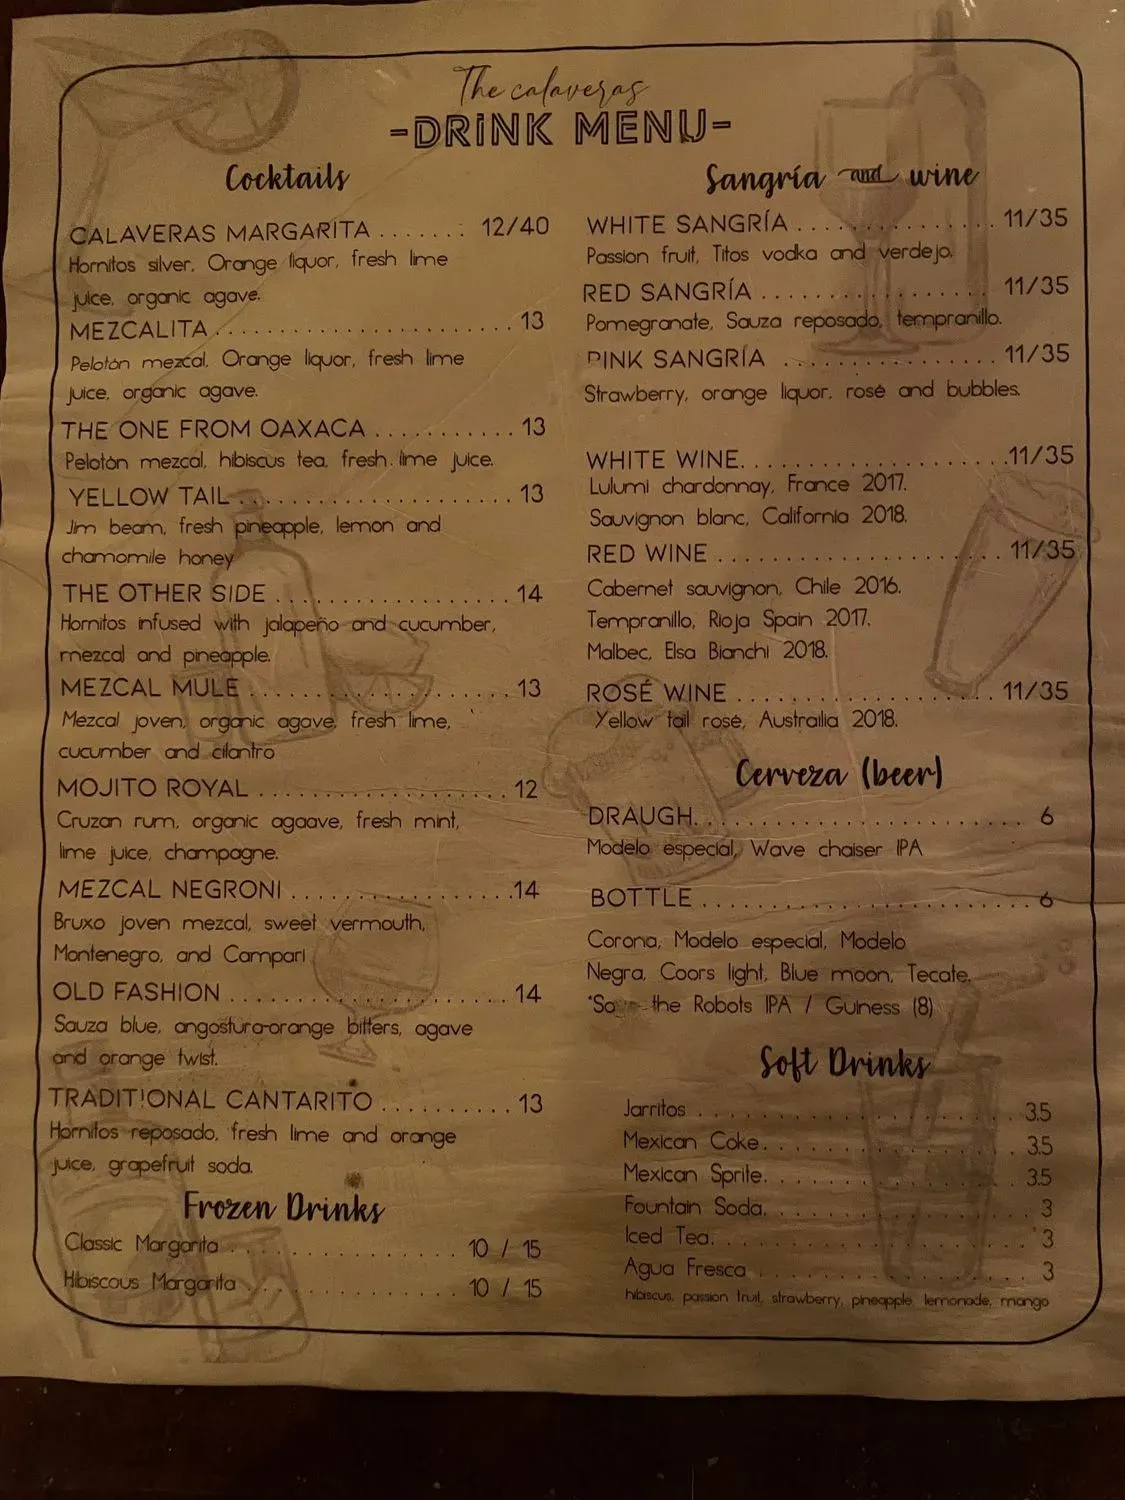 The calaveras
-DRINK MENU-
Cocktails
CALAVERAS MARGARITA ....... 12/40
Hornitos silver, Orange liquor, fresh lime
juice, organic agave.
MEZCALITA ....................... 13
Pelotón mezcal, Orange liquor, fresh lime
juice, organic agave.
THE ONE FROM OAXACA ........... 13
Pelotón mezcal, hibiscus tea, fresh lime juice.
YELLOW TAIL ...................... 13
Jim beam, fresh pineapple, lemon and
chamomile honey
THE OTHER SIDE .................. 14
Hornitos infused with jalapeño and cucumber,
mezcal and pineapple.
MEZCAL MULE .................... 13
Mezcal joven, organic agave, fresh lime,
cucumber and cilantro
MOJITO ROYAL ................... 12
Cruzan rum, organic agaave, fresh mint,
lime juice, champagne.
MEZCAL NEGRONI ................. 14
Bruxo joven mezcal, sweet vermouth,
Montenegro, and Campari
OLD FASHION ..................... 14
Sauza blue, angostura-orange bitters, agave
and orange twist.
TRADITIONAL CANTARITO .......... 13
Hornitos reposado, fresh lime and orange
juice, grapefruit soda.
Frozen Drinks
Classic Margarita ................. 10 / 15
Hibiscous Margarita ................ 10 / 15
Sangría and wine
WHITE SANGRÍA ................ 11/35
Passion fruit, Titos vodka and verdejo.
RED SANGRÍA ................... 11/35
Pomegranate, Sauza reposado, tempranillo.
PINK SANGRÍA ................. 11/35
Strawberry, orange liquor, rosé and bubbles.
WHITE WINE ..................... 11/35
Lulumi chardonnay, France 2017.
Sauvignon blanc, California 2018.
RED WINE ....................... 11/35
Cabernet sauvignon, Chile 2016.
Tempranillo, Rioja Spain 2017.
Malbec, Elsa Bianchi 2018.
ROSÉ WINE ..................... 11/35
Yellow tail rosé, Austrailia 2018.
Cerveza (beer)
DRAUGH .......................... 6
Modelo especial, Wave chaiser IPA
BOTTLE .......................... 6
Corona, Modelo especial, Modelo
Negra, Coors light, Blue moon, Tecate.
the Robots IPA / Guiness (8)
Soft Drinks
Jarritos ......................... 3.5
Mexican Coke ..................... 3.5
Mexican Sprite ................... 3.5
Fountain Soda .................... 3
Iced Tea ......................... 3
Agua Fresca ...................... 3
hibiscus, passion fruit, strawberry, pineapple, lemonade, mango